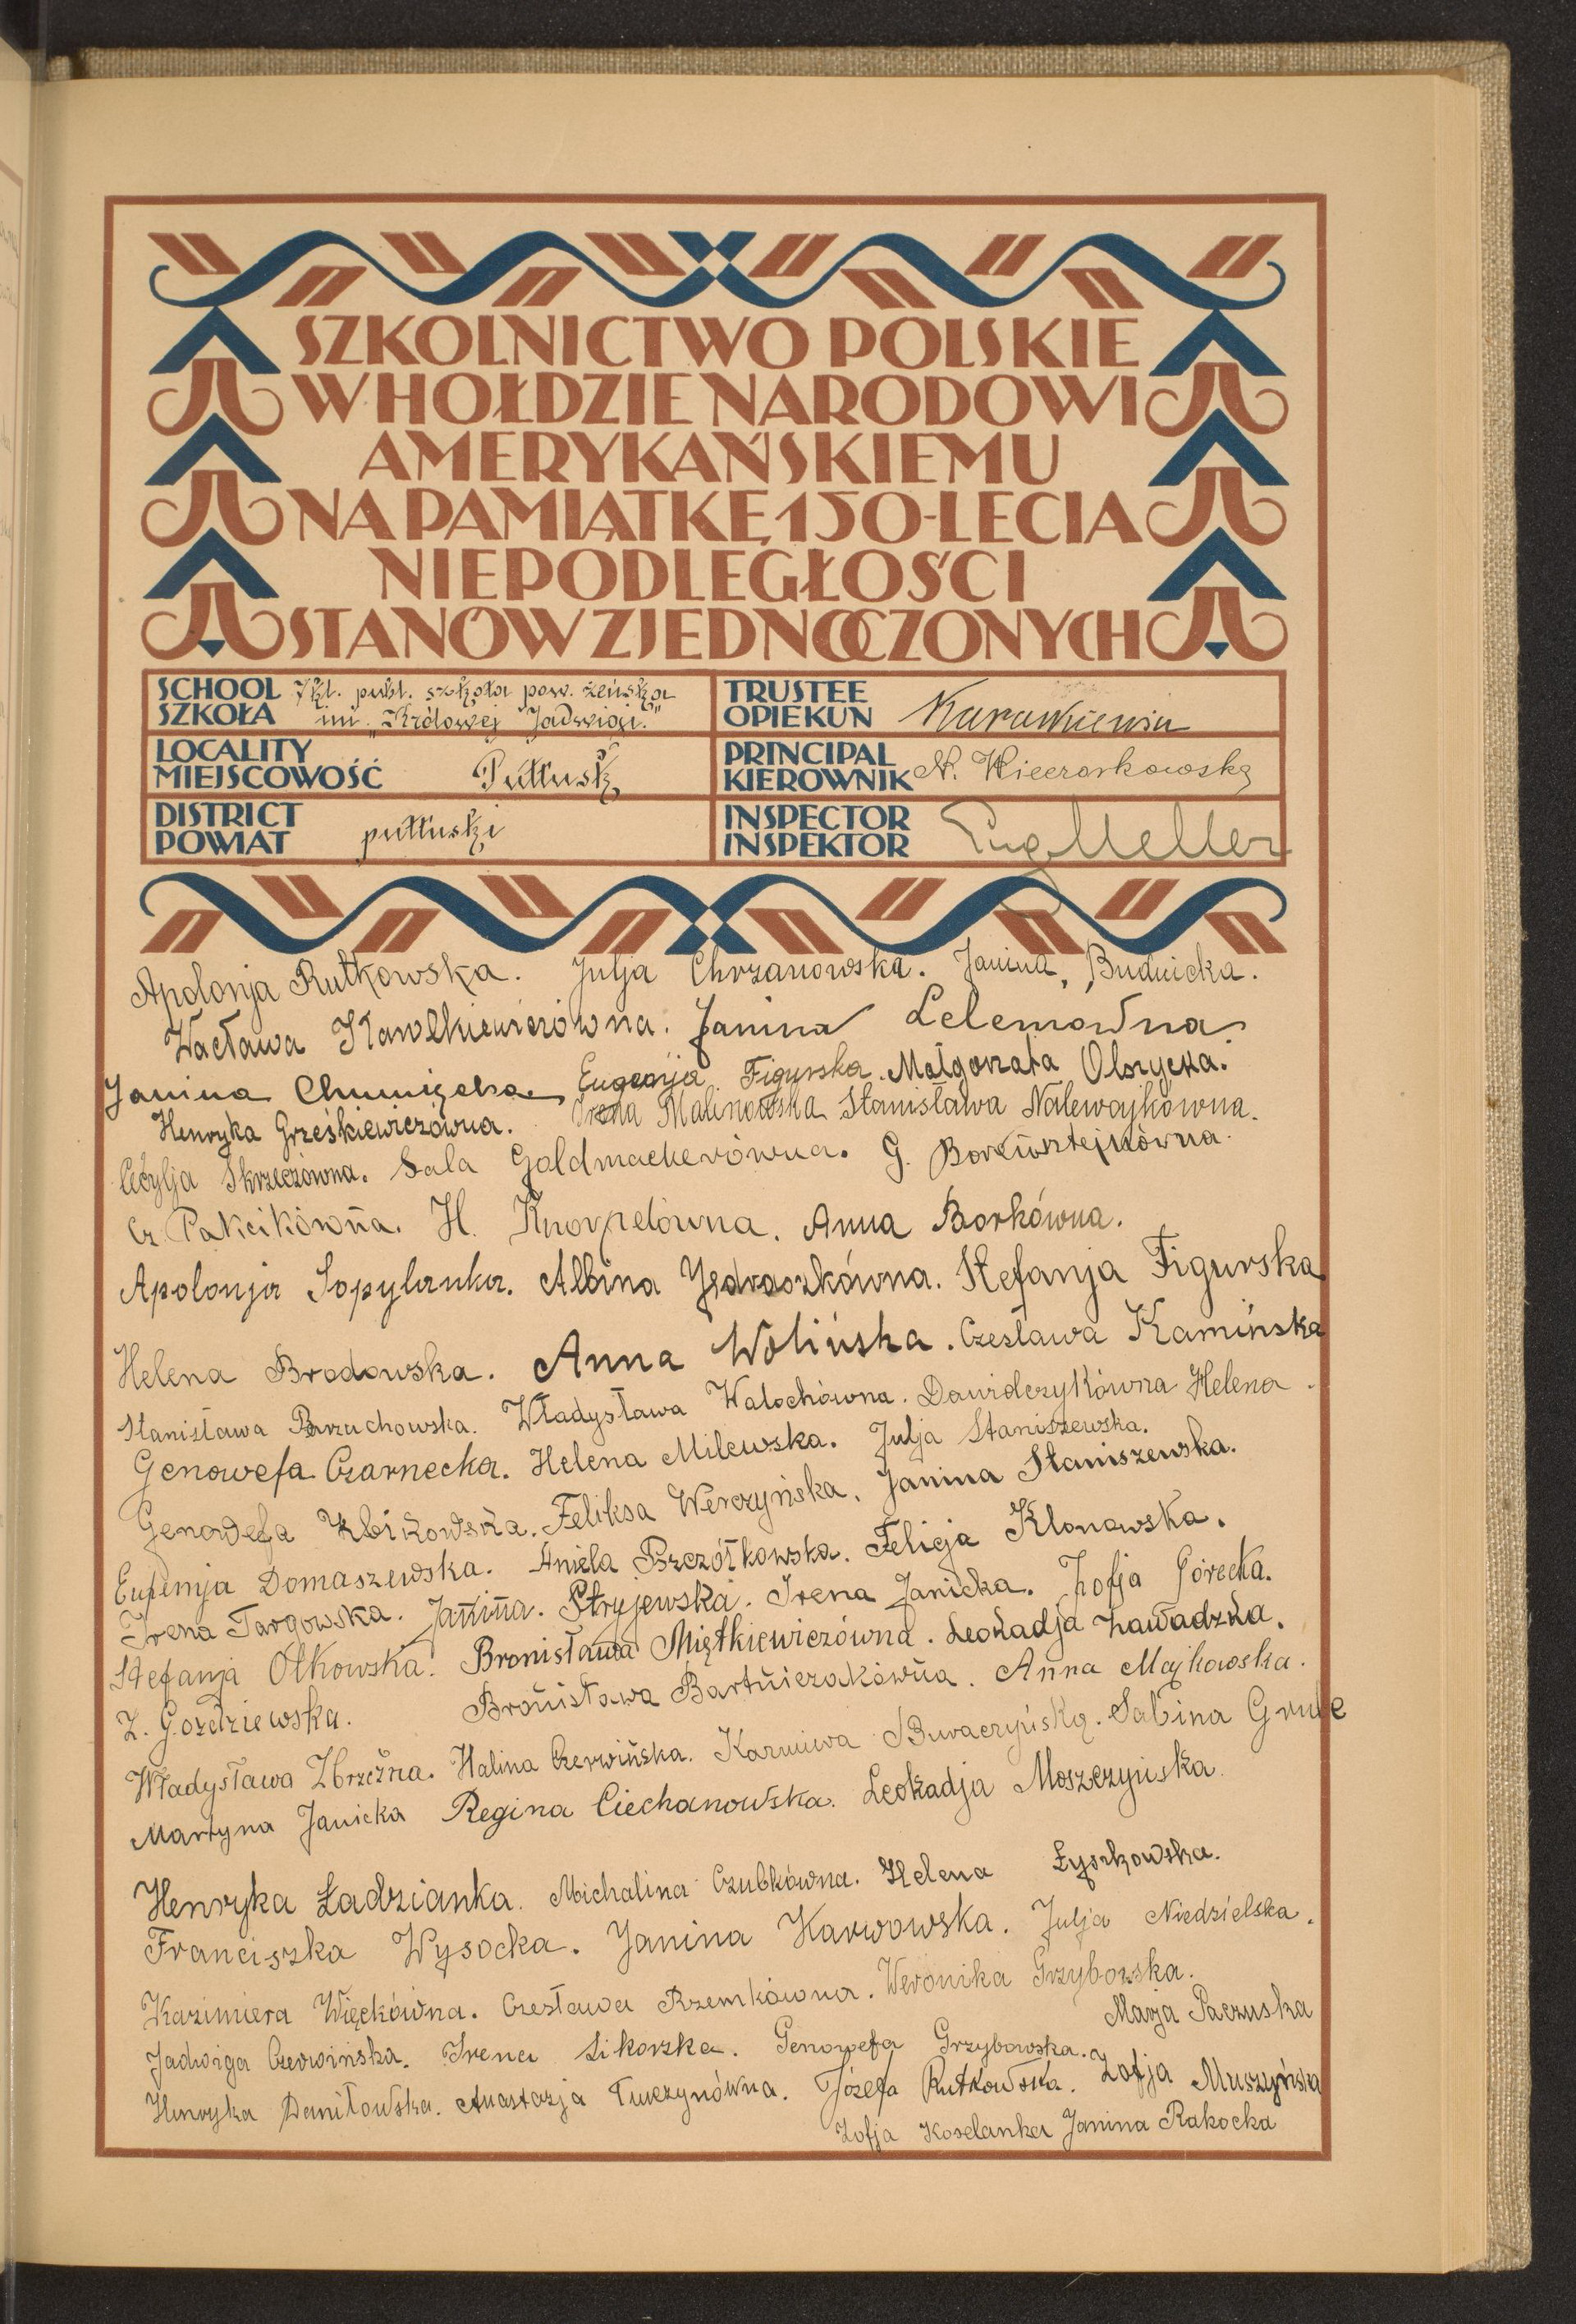 SZKOLNICTWO POLSKIE
W HOŁDZIE NARODOWI
AMERYKAŃSKIEMU
NA PAMIĄTKĘ 150-LECIA
NIEPODLEGŁOŚCI
STANÓW ZJEDNOCZONYCH
SCHOOL 7 kl. publ. szkoła pow. żeńska
SZKOŁA im. „Królowej Jadwigi."
TRUSTEE
OPIEKUN
LOCALITY
MIEJSCOWOŚĆ Pułtusk
PRINCIPAL
KIEROWNIK N. Wieczorkowska
DISTRICT
POWIAT pułtuski
INSPECTOR
INSPEKTOR Eug Meller
Apolonja Rutkowska. Julja Chrzanowska. Janina Budnicka.
Wacława Kawełkiewiczówna. Janina Lelemówna
Janina Eugenja Figurska. Małgorzata Olszycka.
Henryka Grześkiewiczówna. Irena Malinowska Stanisława Nalewajkówna.
Cecylja Skrzeczówna. Sala Goldmacherówna. G. Borensztejnówna.
Cz. Pakcikówna. H. Knorpelówna. Anna Borkówna.
Apolonja Sopylanka. Albina Jędraszkówna. Stefanja Figurska
Helena Brodowska. Anna Wolińska. Czesława Kamińska
Stanisława Brzuchowska. Władysława Walochówna. Dawidczykówna Helena.
Genowefa Czarnecka. Helena Milewska. Julja Staniszewska.
Genowefa Żbikowska. Feliksa Werczyńska. Janina Staniszewska.
Eufemja Domaszewska. Aniela Pszczółkowska. Felicja Klonowska.
Irena Targowska. Janina. Stryjewska. Irena Janicka. Zofja Górecka.
Stefanja Ołkowska. Bronisława Miętkiewiczówna. Leokadja Zawadzka.
Z. Gozdziewska. Bronisława Bartniczakówna. Anna Majkowska.
Władysława Zbrzeżna. Halina Czerwińska. Karmiwa Buraczyńska. Sabina Grube
Martyna Janicka Regina Ciechanowska. Leokadja Moszczyńska.
Henryka Ładzianka. Michalina Czubkówna. Helena Łyszkowska.
Franciszka Wysocka. Janina Karwowska. Julja Niedzielska.
Kazimiera Więckówna. Czesława Rzemkówna. Weronika Grzybowska.
Marja Paczuska
Jadwiga Czerwinska. Irena Sikorzka. Genowefa Grzybowska.
Henryka Daniłowska. Anastazja Tuczynówna. Józefa Rutkowska. Zofja Muszyńska
Zofja Koselanka Janina Rakocka